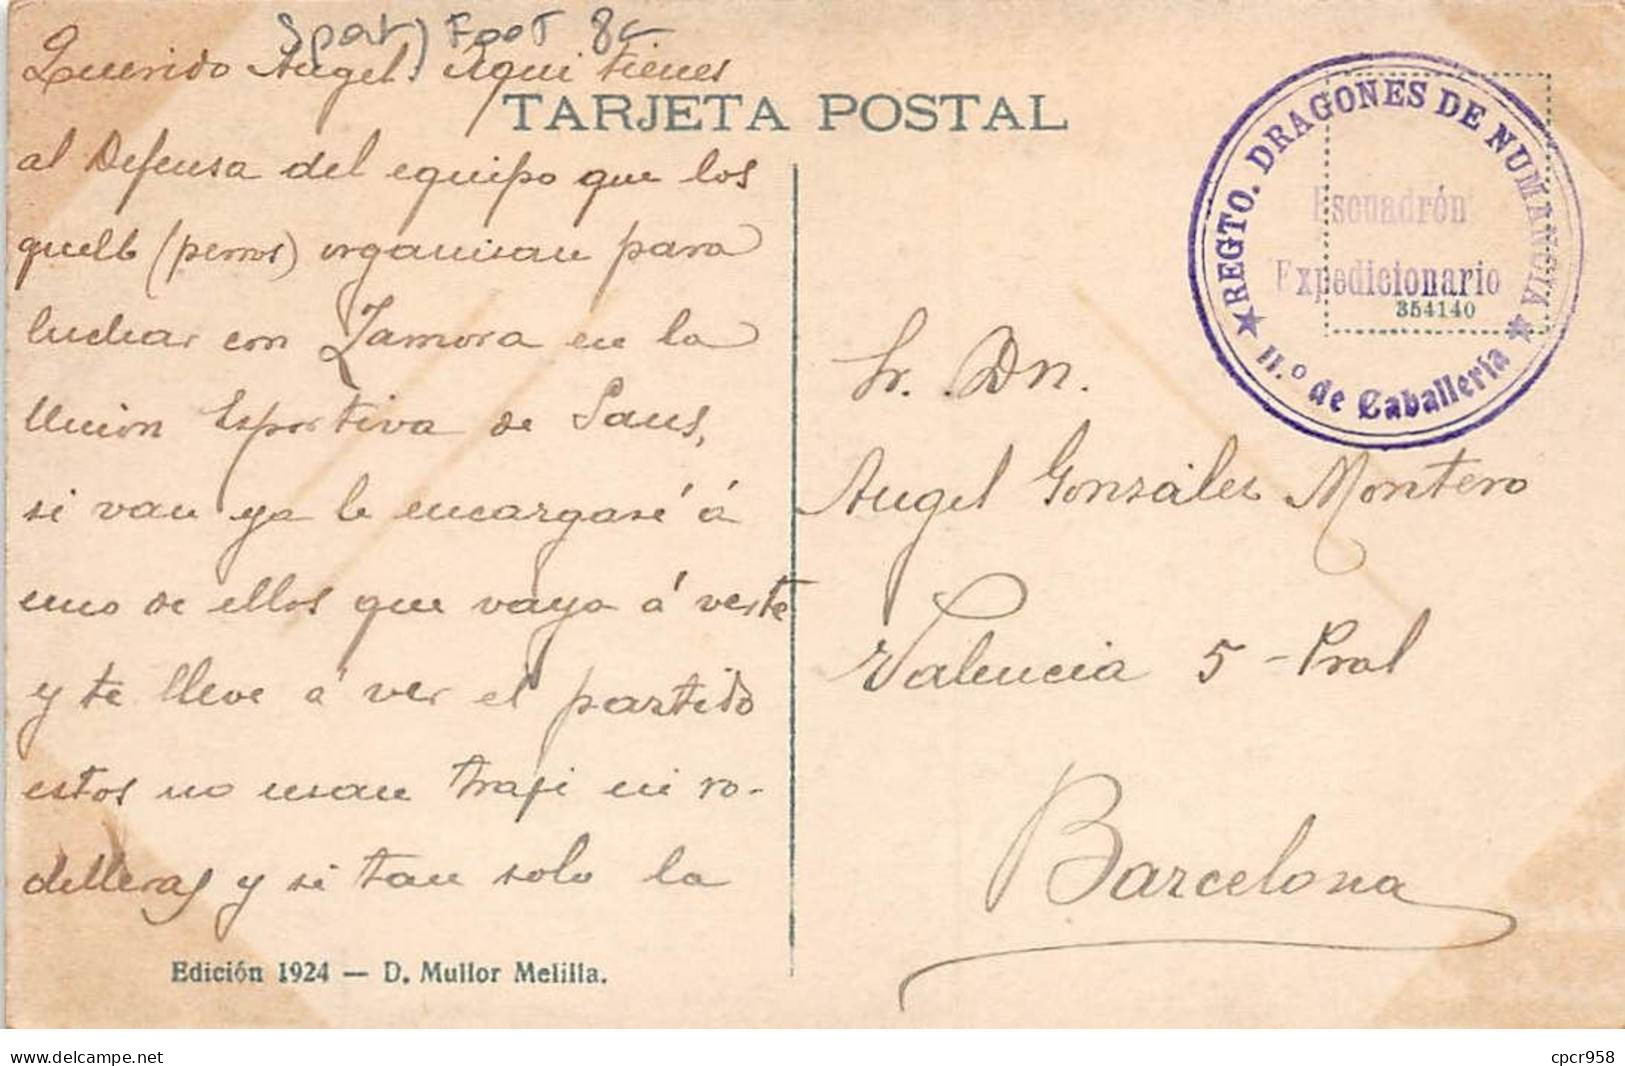 Sport) Foot 8c
Querido Angel. Aqui tienes
TARJETA POSTAL
al Defensa del equipo que los
quelb (perros) organisan para
luchar con Zamora en la
Unión Esportiva de Sans,
si van ya le encargasé á
uno de ellos que vaya á verte
y te lleve á ver el partido
estos no usan traje ni ro-
delleras y si tan solo la
Edición 1924 — D. Mullor Melilla.
REGTO. DRAGONES DE NUMANCIA
Escuadrón
Expedicionario
354140
11.º de Caballería
Sr. Dn.
Angel Gonsáles Montero
Valencia 5 - Pral
Barcelona
delcampe.net
cpcr958